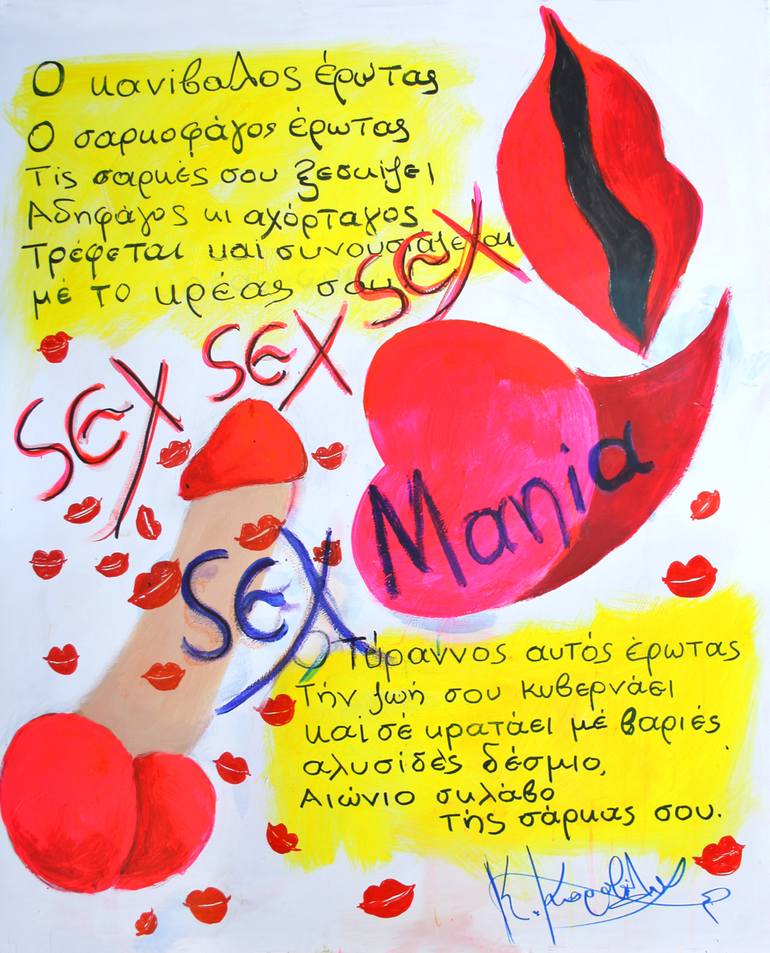 Ο κανίβαλος έρωτας
Ο σαρκοφάγος έρωτας
Τίς σαρκές σου ξεσκίζει
Αδηφάγος κι αχόρταγος
Τρέφεται καί συνουσιάζεται
μέ το κρέας σου
SEX SEX SEX
SEX Mania
Τύραννος αυτός έρωτας
Τήν ζωή σου κυβερνάει
καί σέ κρατάει μέ βαριές
αλυσίδες δέσμιο,
Αιώνιο σκλάβο
τής σάρκας σου.
Κ.